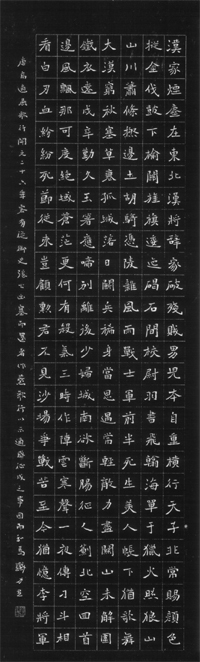 漢家煙塵在東北漢將辭家破殘賊男兒本自重橫行天子非常賜顏色
摐金伐鼓下榆關旌旗逶迤碣石間校尉羽書飛瀚海單于獵火照狼山
山川蕭條極邊土胡騎憑陵雜風雨戰士軍前半死生美人帳下猶歌舞
大漠窮秋塞草衰孤城落日鬥兵稀身當恩遇常輕敵力盡關山未解圍
鐵衣遠戍辛勤久玉箸應啼別離後少婦城南欲斷腸征人薊北空回首
邊風飄那可度絕域蒼茫更何有殺氣三時作陣雲寒聲一夜傳刁斗相
看白刃血紛紛死節從來豈顧勳君不見沙場爭戰苦至今猶憶李將軍
唐高適燕歌行開元二十六年客有從御史張公出塞而還者作燕歌行以示適感征戍之事因而和焉